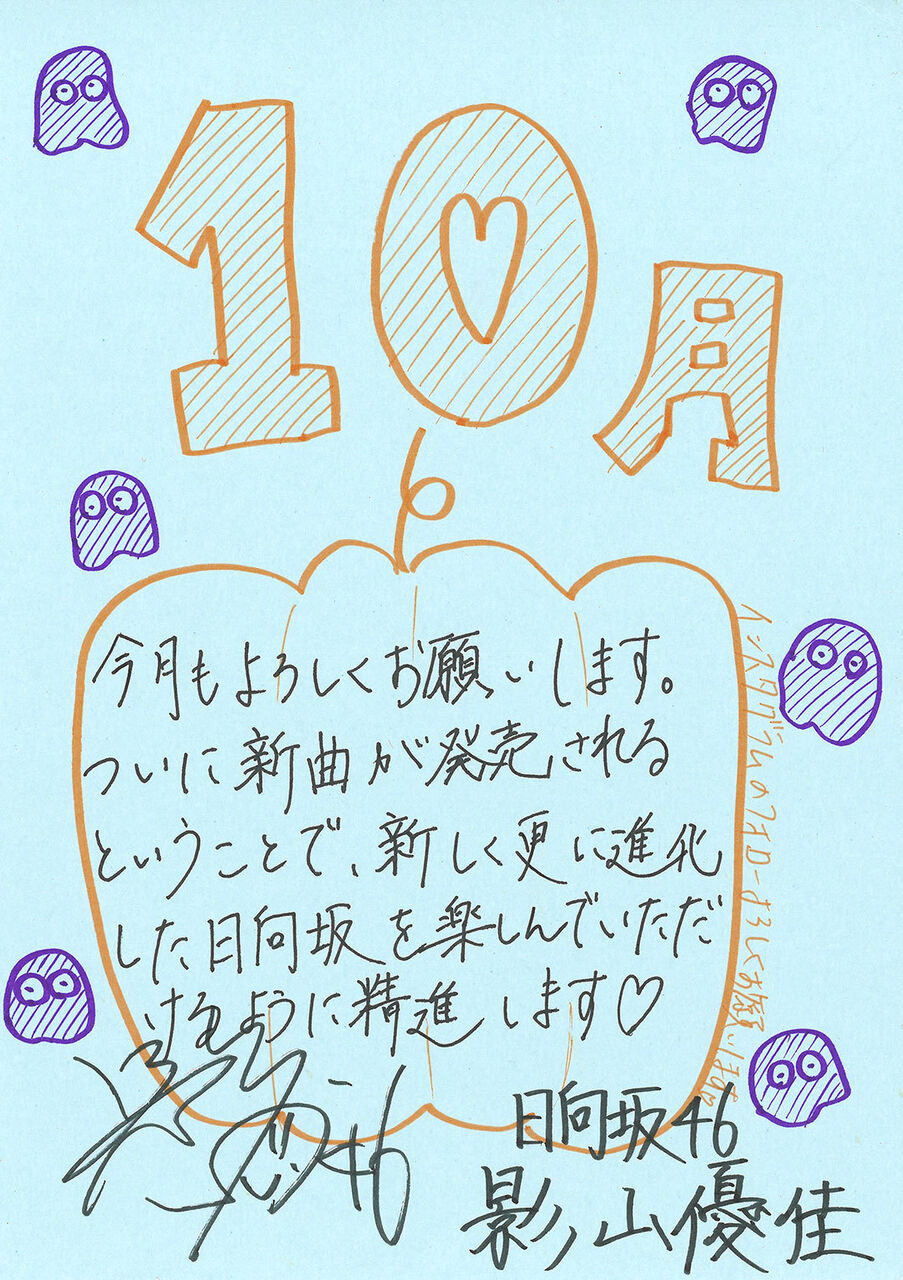 10月
今月もよろしくお願いします。
ついに新曲が発売される
ということで、新しく更に進化
した日向坂を楽しんでいただ
けるように精進します♡
インスタグラムのフォローよろしくお願いします
46
日向坂46
影山優佳